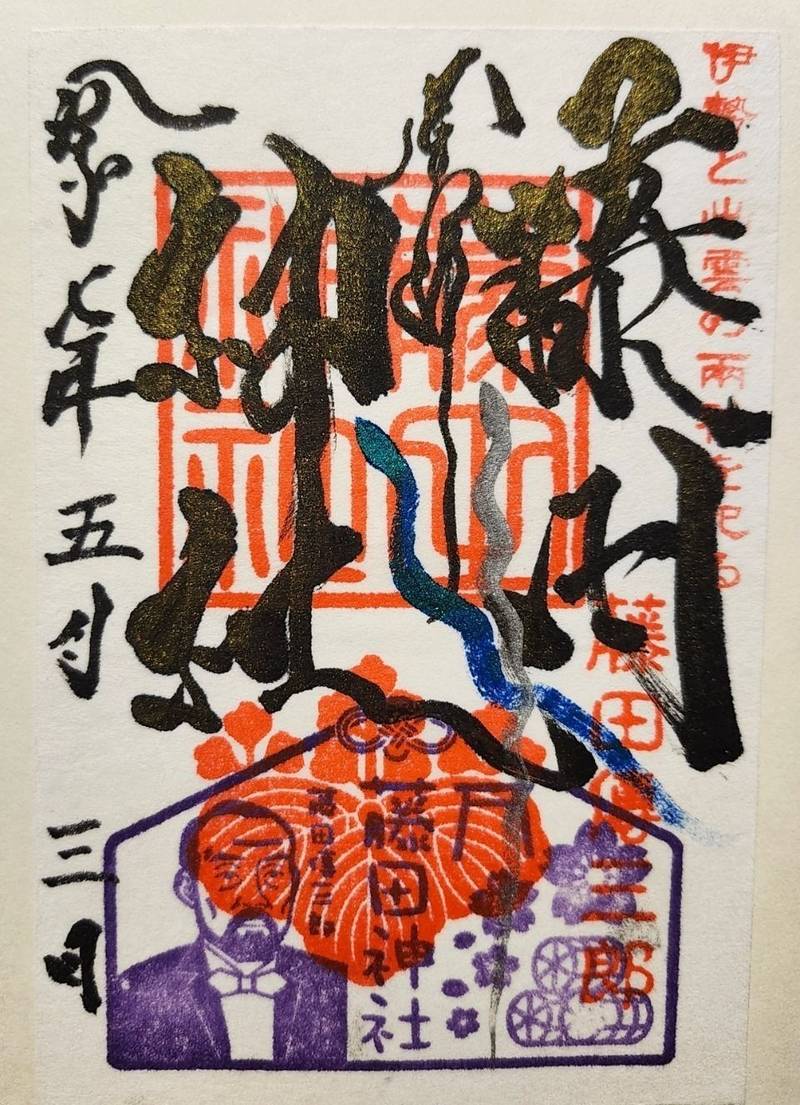 伊勢と出雲の両
を祀る
藤田傳三郎
奉拝
藤田
神社
藤田
神社
令和七年五月三日
藤田神社
藤田傳三郎